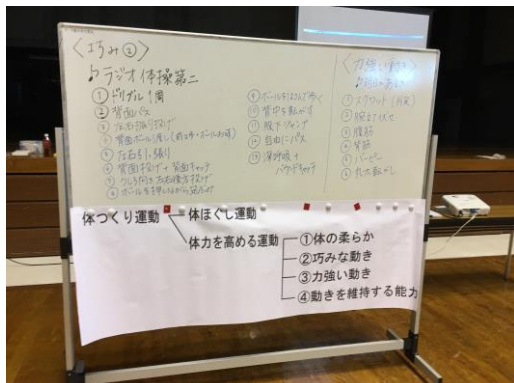 〈巧み②〉
♪ラジオ体操第二
①ドリブル1周
②背面パス
③左右振り投げ
④背面ボール渡し
⑤左右引っ張り
⑥背面投げ+背面キャッチ
⑦うしろ向き左右後方投げ
⑧ボールを押しながら
⑨ボールをはさんで歩く
⑩背中を転がす
⑪股下ジャンプ
⑫自由にパス
⑬深呼吸+
バウンドキャッチ
〈力強い動き〉
①スクワット
②腕立て伏せ
③腹筋
④背筋
⑤バーピー
⑥丸太転がし
体つくり運動
体ほぐし運動
体力を高める運動
①体の柔らか
②巧みな動き
③力強い動き
④動きを維持する能力